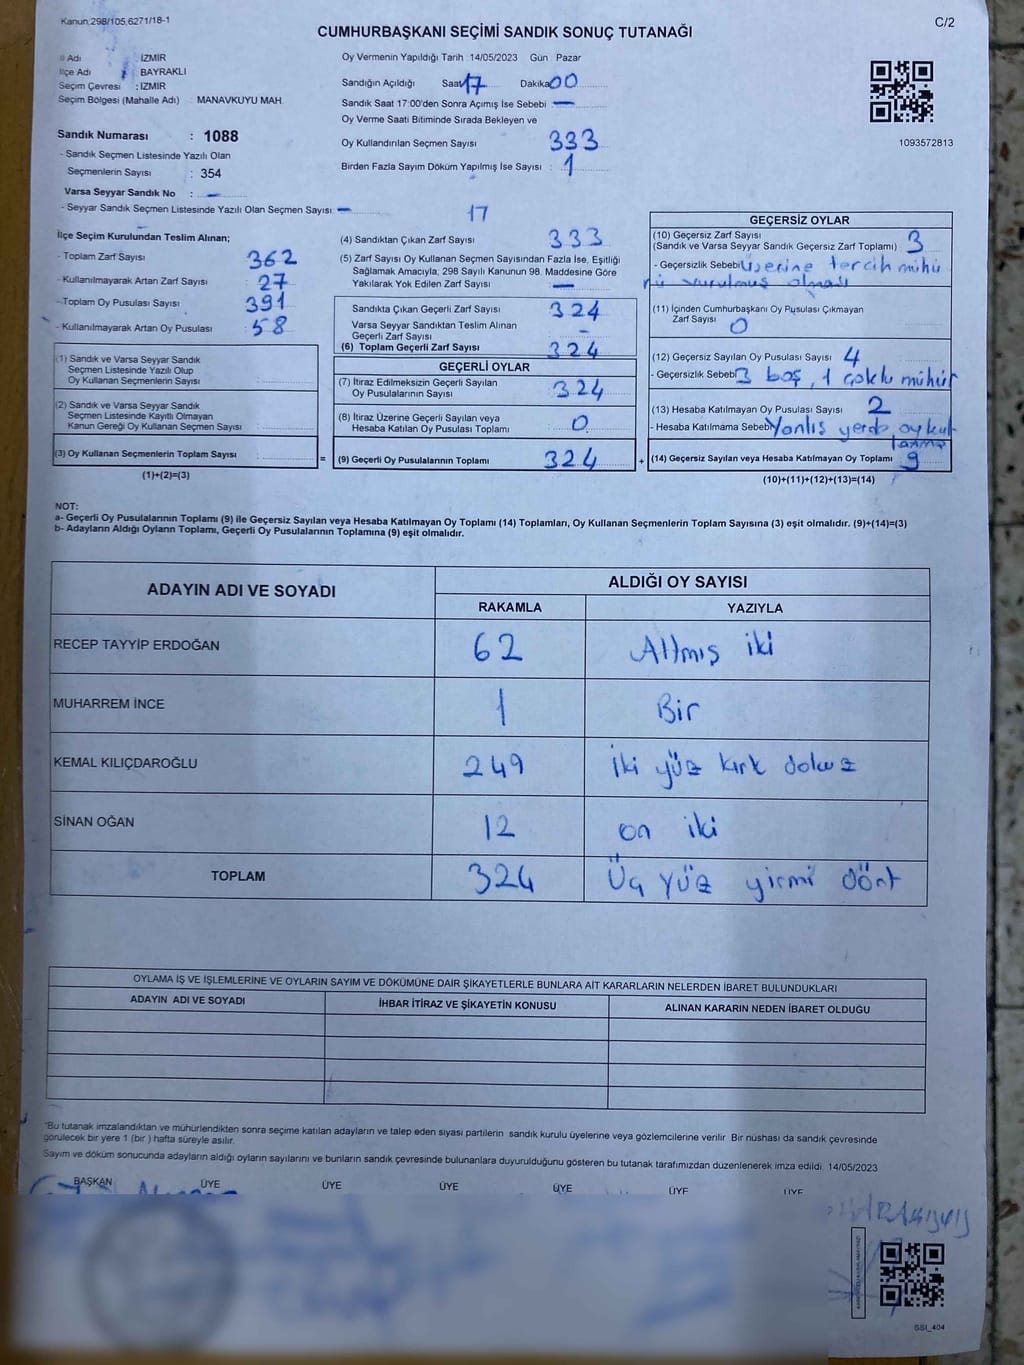 Kanun,298/105,6271/18-1
C/2
CUMHURBAŞKANI SEÇİMİ SANDIK SONUÇ TUTANAĞI
İl Adı : İZMİR
İlçe Adı : BAYRAKLI
Seçim Çevresi : İZMİR
Seçim Bölgesi (Mahalle Adı) : MANAVKUYU MAH.
Sandık Numarası : 1088
- Sandık Seçmen Listesinde Yazılı Olan
Seçmenlerin Sayısı : 354
Varsa Seyyar Sandık No : –
- Seyyar Sandık Seçmen Listesinde Yazılı Olan Seçmen Sayısı : –
Oy Vermenin Yapıldığı Tarih : 14/05/2023 Gün : Pazar
Sandığın Açıldığı Saat 17 Dakika 00
Sandık Saat 17:00'den Sonra Açımış İse Sebebi : –
Oy Verme Saati Bitiminde Sırada Bekleyen ve
Oy Kullandırılan Seçmen Sayısı 333
Birden Fazla Sayım Döküm Yapılmış İse Sayısı : 1
17
1093572813
İlçe Seçim Kurulundan Teslim Alınan;
- Toplam Zarf Sayısı : 362
- Kullanılmayarak Artan Zarf Sayısı : 27
- Toplam Oy Pusulası Sayısı : 391
- Kullanılmayarak Artan Oy Pusulası : 58
(1) Sandık ve Varsa Seyyar Sandık
Seçmen Listesinde Yazılı Olup
Oy Kullanan Seçmenlerin Sayısı :
(2) Sandık ve Varsa Seyyar Sandık
Seçmen Listesinde Kayıtlı Olmayan
Kanun Gereği Oy Kullanan Seçmen Sayısı :
(3) Oy Kullanan Seçmenlerin Toplam Sayısı :
=
(1)+(2)=(3)
(4) Sandıktan Çıkan Zarf Sayısı : 333
(5) Zarf Sayısı Oy Kullanan Seçmen Sayısından Fazla İse, Eşitliği
Sağlamak Amacıyla, 298 Sayılı Kanunun 98. Maddesine Göre
Yakılarak Yok Edilen Zarf Sayısı : –
Sandıkta Çıkan Geçerli Zarf Sayısı : 324
Varsa Seyyar Sandıktan Teslim Alınan
Geçerli Zarf Sayısı : –
(6) Toplam Geçerli Zarf Sayısı : 324
GEÇERLİ OYLAR
(7) İtiraz Edilmeksizin Geçerli Sayılan
Oy Pusulasının Sayısı : 324
(8) İtiraz Üzerine Geçerli Sayılan veya
Hesaba Katılan Oy Pusulası Toplamı : 0
(9) Geçerli Oy Pusulalarının Toplamı : 324
+
GEÇERSİZ OYLAR
(10) Geçersiz Zarf Sayısı
(Sandık ve Varsa Seyyar Sandık Geçersiz Zarf Toplamı) : 3
- Geçersizlik Sebebi : üzerine tercih mühü
rü vurulmuş olması
(11) İçinden Cumhurbaşkanı Oy Pusulası Çıkmayan
Zarf Sayısı : 0
(12) Geçersiz Sayılan Oy Pusulası Sayısı : 4
- Geçersizlik Sebebi : 3 boş, 1 çoklu mühür
(13) Hesaba Katılmayan Oy Pusulası Sayısı : 2
- Hesaba Katılmama Sebebi : Yanlış yerde oy kul
lanma
(14) Geçersiz Sayılan veya Hesaba Katılmayan Oy Toplamı : 9
(10)+(11)+(12)+(13)=(14)
NOT:
a- Geçerli Oy Pusulalarının Toplamı (9) ile Geçersiz Sayılan veya Hesaba Katılmayan Oy Toplamı (14) Toplamları, Oy Kullanan Seçmenlerin Toplam Sayısına (3) eşit olmalıdır. (9)+(14)=(3)
b- Adayların Aldığı Oyların Toplamı, Geçerli Oy Pusulalarının Toplamına (9) eşit olmalıdır.
ADAYIN ADI VE SOYADI
ALDIĞI OY SAYISI
RAKAMLA YAZIYLA
RECEP TAYYİP ERDOĞAN 62 Altmış iki
MUHARREM İNCE 1 Bir
KEMAL KILIÇDAROĞLU 249 iki yüz kırk dokuz
SİNAN OĞAN 12 on iki
TOPLAM 324 Üç yüz yirmi dört
OYLAMA İŞ VE İŞLEMLERİNE VE OYLARIN SAYIM VE DÖKÜMÜNE DAİR ŞİKAYETLERLE BUNLARA AİT KARARLARIN NELERDEN İBARET BULUNDUKLARI
ADAYIN ADI VE SOYADI İHBAR İTİRAZ VE ŞİKAYETİN KONUSU ALINAN KARARIN NEDEN İBARET OLDUĞU
*Bu tutanak imzalandıktan ve mühürlendikten sonra seçime katılan adayların ve talep eden siyasi partilerin sandık kurulu üyelerine veya gözlemcilerine verilir. Bir nüshası da sandık çevresinde
görülecek bir yere 1 (bir) hafta süreyle asılır.
Sayım ve döküm sonucunda adayların aldığı oyların sayılarını ve bunların sandık çevresinde bulunanlara duyurulduğunu gösteren bu tutanak tarafımızdan düzenlenerek imza edildi. 14/05/2023
BAŞKAN ÜYE ÜYE ÜYE ÜYE ÜYE ÜYE
SSI_404